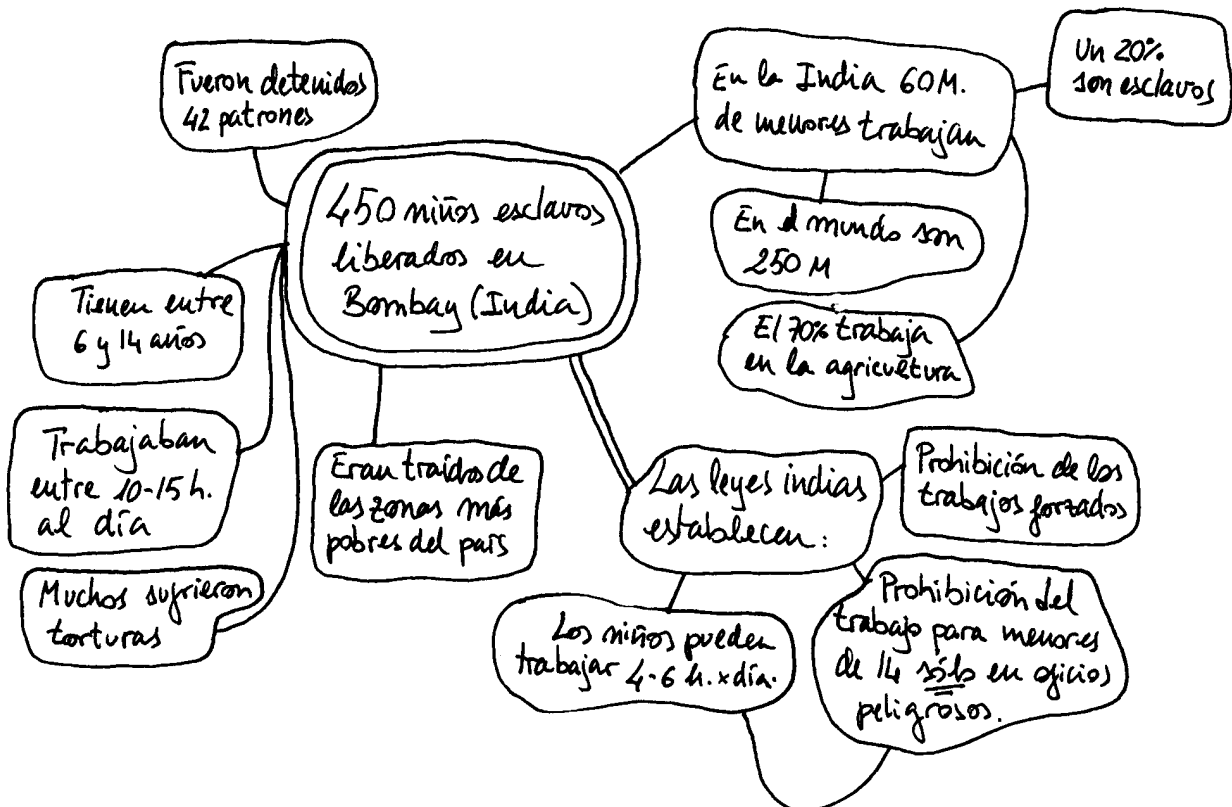 450 niños esclavos
liberados en
Bombay (India)
Fueron detenidos
42 patrones
Tienen entre
6 y 14 años
Trabajaban
entre 10-15 h.
al día
Muchos sufrieron
torturas
Eran traídos de
las zonas más
pobres del país
En la India 60M.
de menores trabajan
Un 20%
son esclavos
En el mundo son
250 M
El 70% trabaja
en la agricultura
Las leyes indias
establecen:
Prohibición de los
trabajos forzados
Prohibición del
trabajo para menores
de 14 sólo en oficios
peligrosos.
Los niños pueden
trabajar 4-6 h. x día.